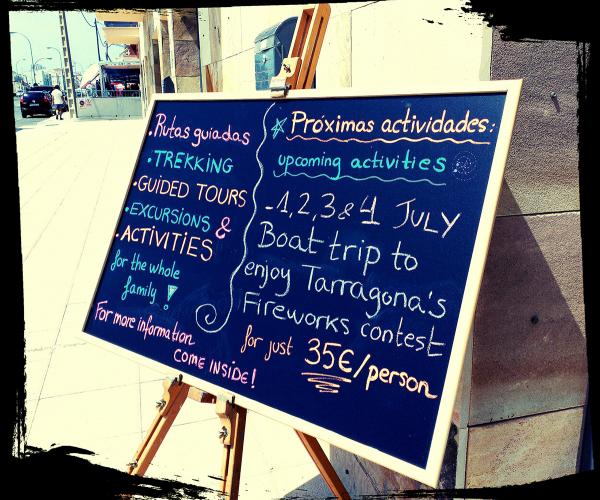 • Rutas guiadas
• TREKKING
• GUIDED TOURS
• EXCURSIONS &
• ACTIVITIES
for the whole
family!
For more information
COME INSIDE!
Próximas actividades:
upcoming activities
- 1, 2, 3 & 4 JULY
Boat trip to
enjoy Tarragona's
Fireworks contest
for just 35€/person